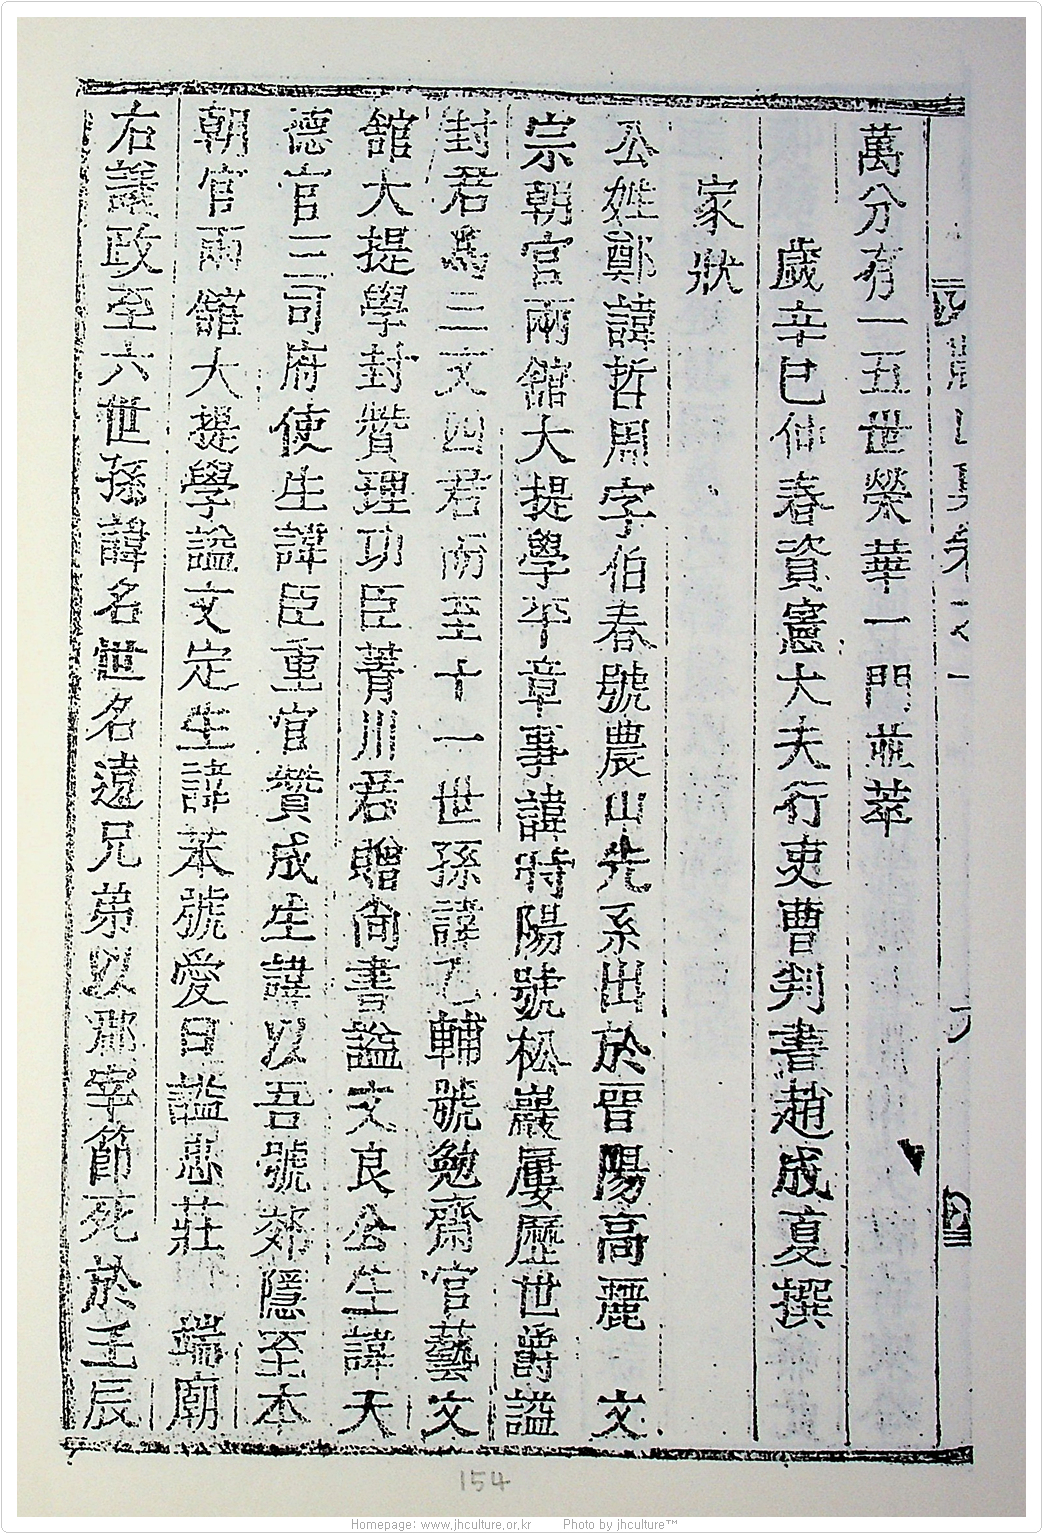 萬分有一五世榮華一門並萃
歲辛巳仲春資憲大夫行吏曹判書趙成夏撰
家狀
公姓鄭諱哲周字伯春號農山先系出於晉陽高麗 文
宗朝官兩舘大提學平章事諱時陽號松巖屢歷世爵謚
封君爲三文四君而至十一世孫諱乙輔號勉齋官藝文
舘大提學封贊理功臣菁川君贈尙書謚文良公生諱天
德官三司府使生諱臣重官贊成生諱以吾號郊隱至本
朝官兩舘大提學謚文定生諱苯號愛日謚忠莊 端廟
右議政至六世孫諱名世名遠兄弟以郡宰節死於壬辰
154
Homepage: www.jhculture.or.kr Photo by jhculture™